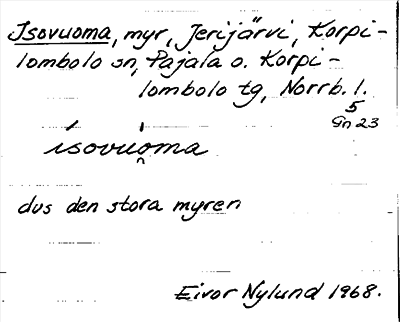 Isovuoma, myr, Jerijärvi, Korpi-
lombolo sn, Pajala o. Korpi-
lombolo tg, Norrb. l.
5
Gn 23
ísovuo̯ma
dvs den stora myren
Eivor Nylund 1968.